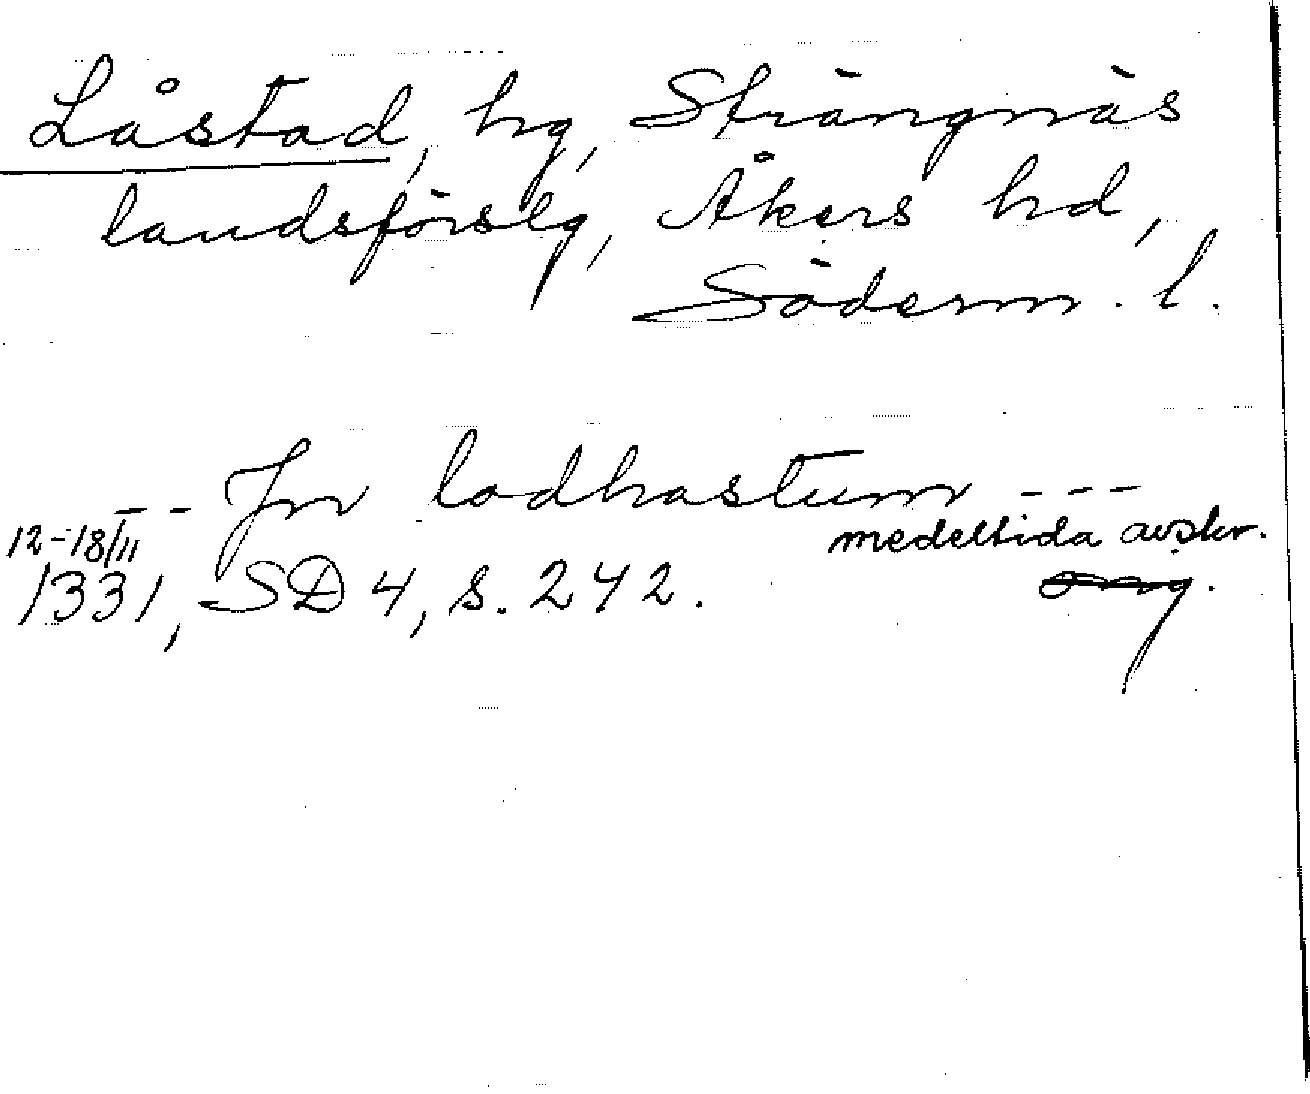 Låstad, hg, Strängnäs
landsförslg, Åkers hd,
Söderm. l.
--- Jn ladhastum ---
12-18/11 medeltida avskr.
1331, SD 4, s. 242. orig.